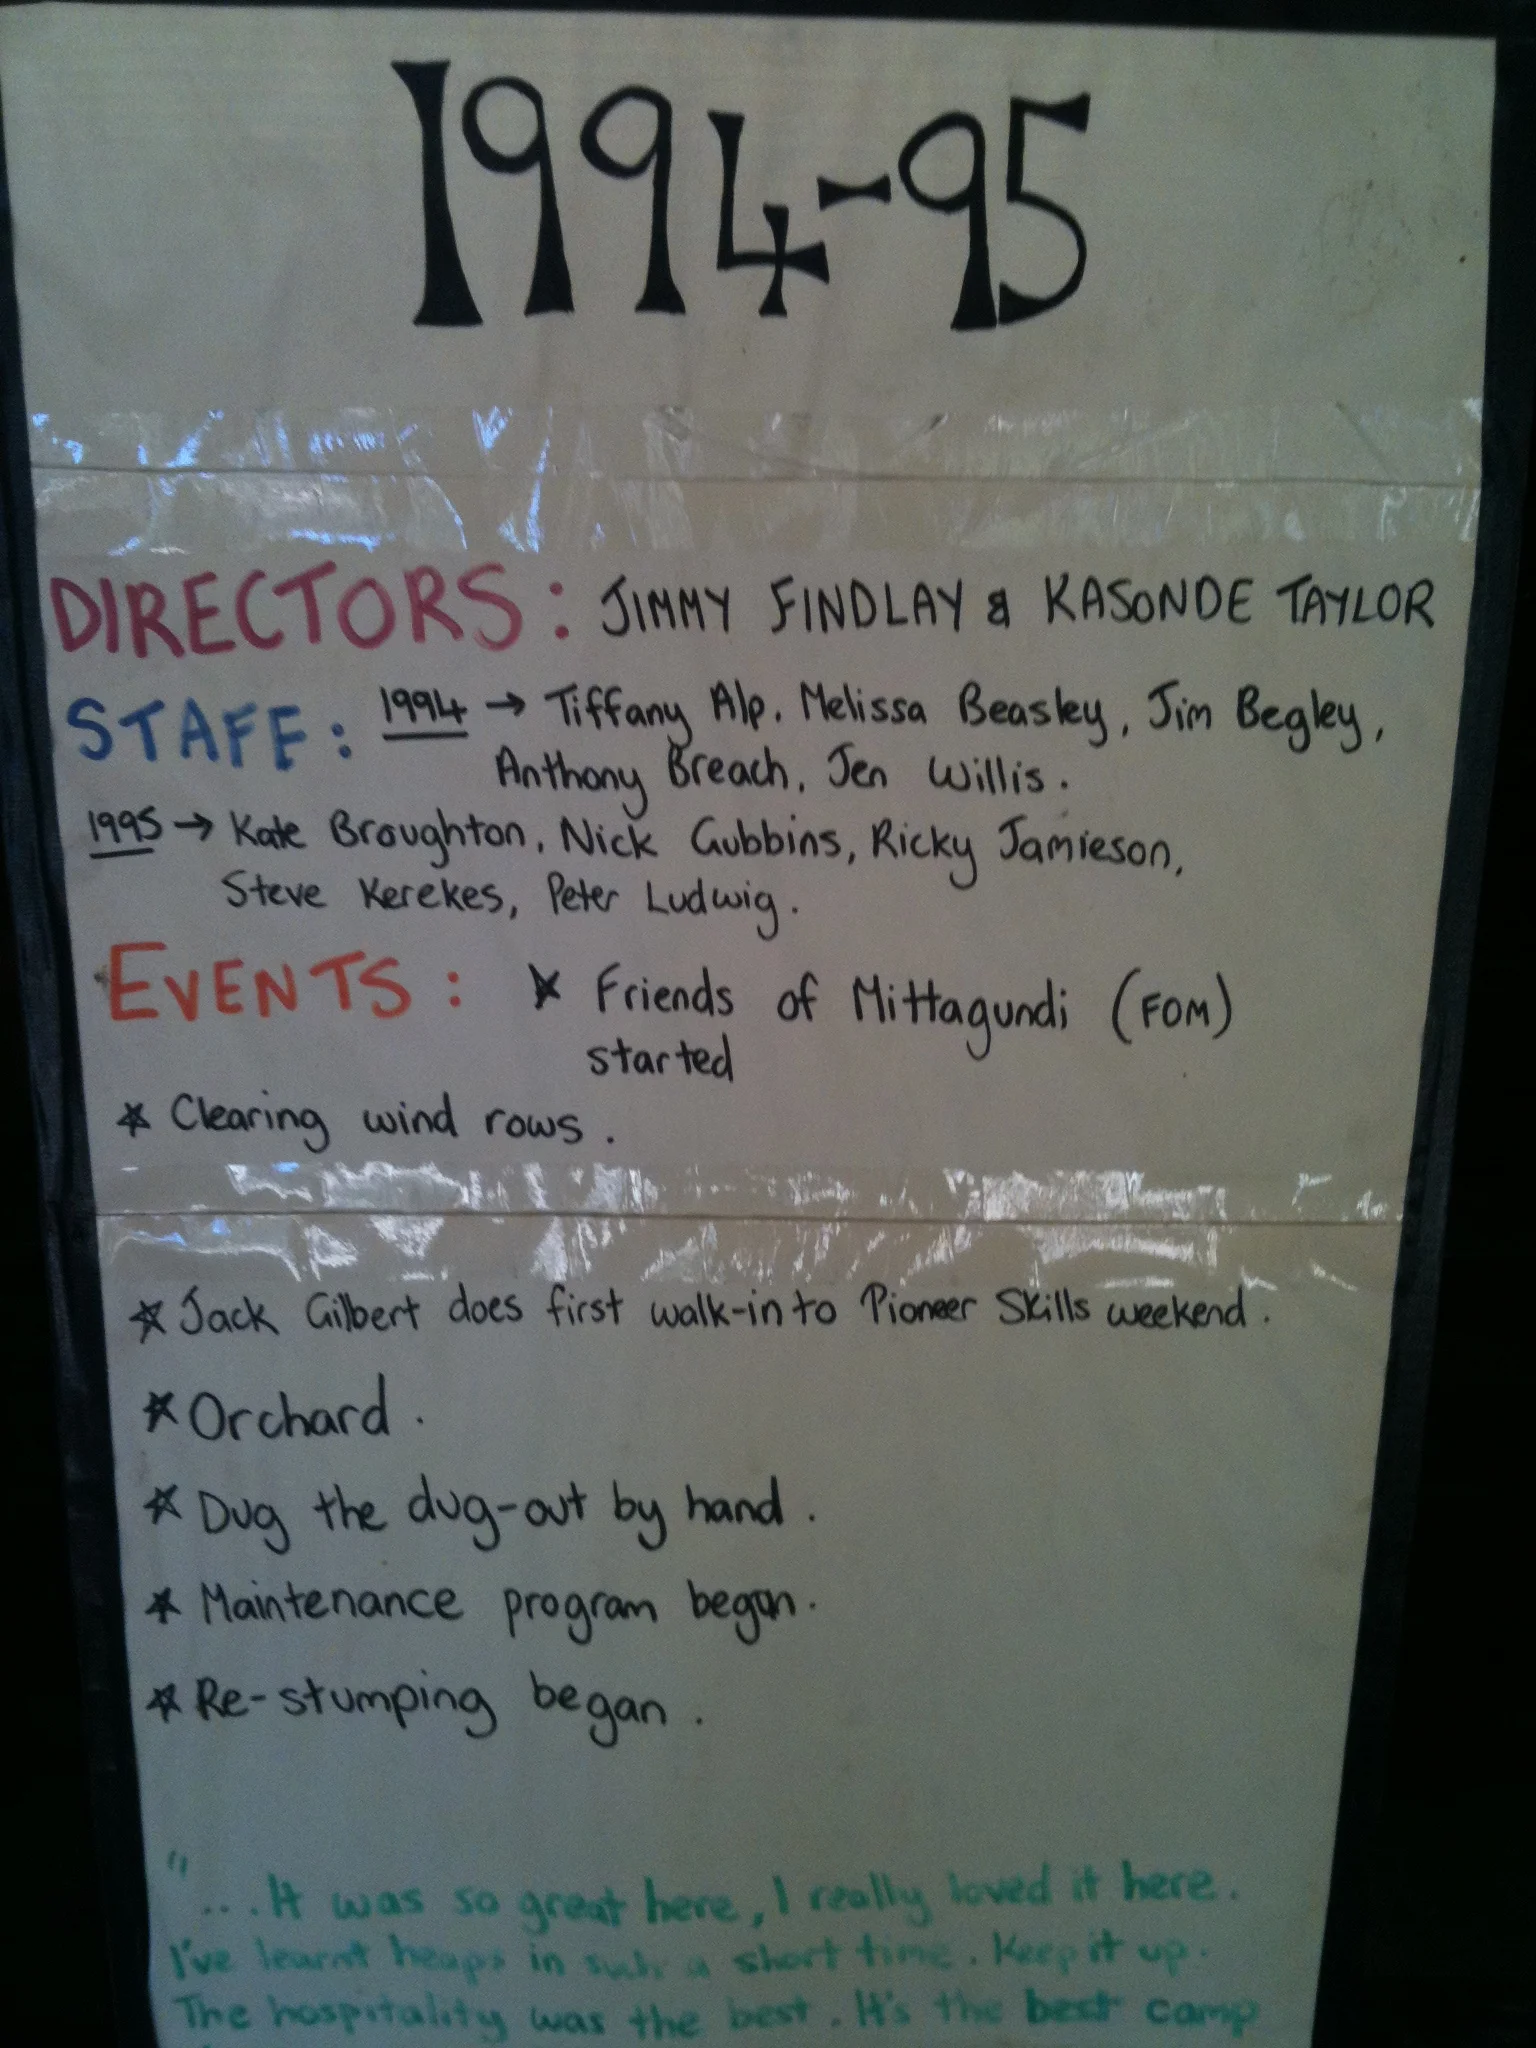 1994-95
DIRECTORS: JIMMY FINDLAY & KASONDE TAYLOR
STAFF: 1994 → Tiffany Alp, Melissa Beasley, Jim Begley,
Anthony Breach, Jen Willis.
1995 → Kate Broughton, Nick Gubbins, Ricky Jamieson,
Steve Kerekes, Peter Ludwig.
EVENTS: * Friends of Mittagundi (FOM)
started
* Clearing wind rows.
* Jack Gilbert does first walk-in to Pioneer Skills weekend.
* Orchard.
* Dug the dug-out by hand.
* Maintenance program began.
* Re-stumping began.
"... It was so great here, I really loved it here.
I've learnt heaps in such a short time. Keep it up.
The hospitality was the best. It's the best camp